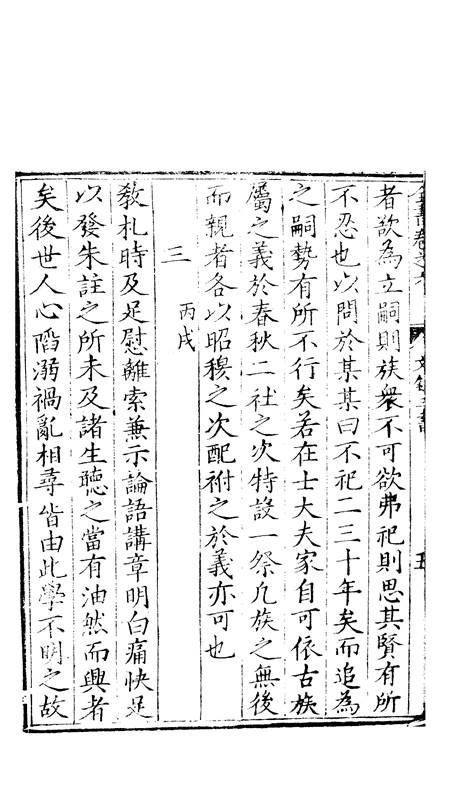 全書卷之六 文錄三書 五
者欲為立嗣則族衆不可欲弗祀則思其賢有所
不忍也以問於某某曰不祀二三十年矣而追為
之嗣勢有所不行矣若在士大夫家自可依古族
屬之義於春秋二社之次特設一祭凡族之無後
而親者各以昭穆之次配祔之於義亦可也
三 丙戌
教札時及足慰離索兼示論語講章明白痛快足
以發朱註之所未及諸生聽之當有油然而興者
矣後世人心陷溺禍亂相尋皆由此學不明之故